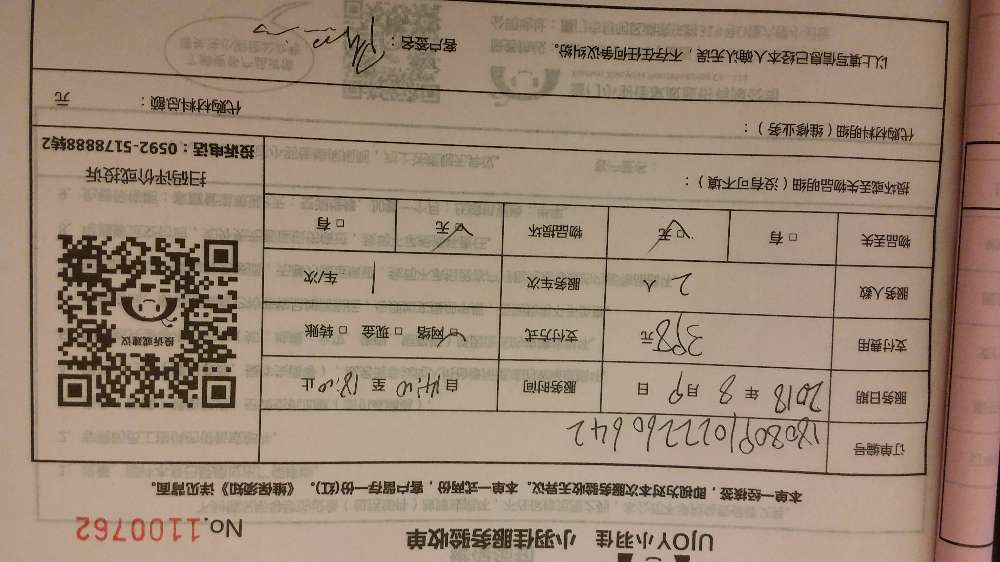 UJOY小羽佳 小羽佳服务验收单
No.1100762
本单一经核签，即视为对本次服务验收无异议。本单一式两份，客户留存一份(红)。《维保须知》详见背面。
订单编号 180809102226064 2
服务日期 2018 年 8 月 9 日 服务时间 自 14:10 至 18:10 止
支付费用 398 元 支付方式 □ 网络 □ 现金 □ 转账
服务人数 2 人 服务车次 1 车/次
物品丢失 □ 有 □ 无 物品损坏 □ 无 □ 有
投诉或建议
扫码评价或投诉
投诉电话：0592-5178888转2
损坏或丢失物品明细（没有可不填）：
代购材料明细（维修业务）： 代购材料总额： 元
以上填写信息已经本人确认无误，不存在任何争议纠纷。 客户签名：